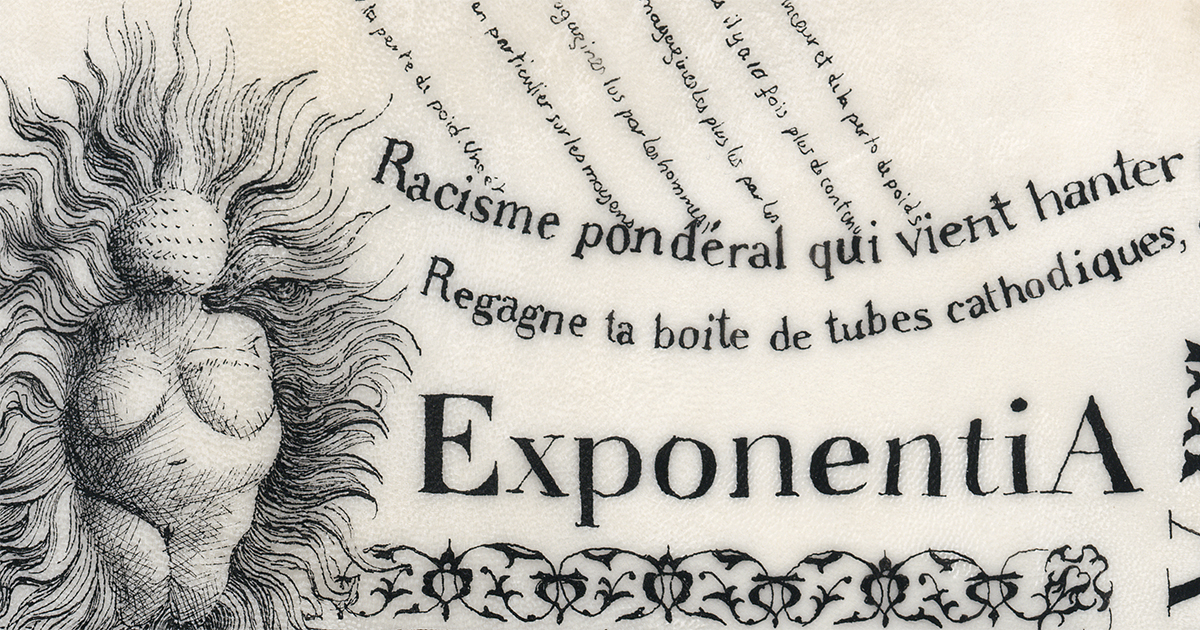 la perte de poid. Une ét
en particulier sur les moyens
agazines lus par les hommes,
magazines les plus lus par les
s il y a 10 fois plus de contenu
minceur et de la perte de poids
Racisme pondéral qui vient hanter
Regagne ta boite de tubes cathodiques,
ExponentiA